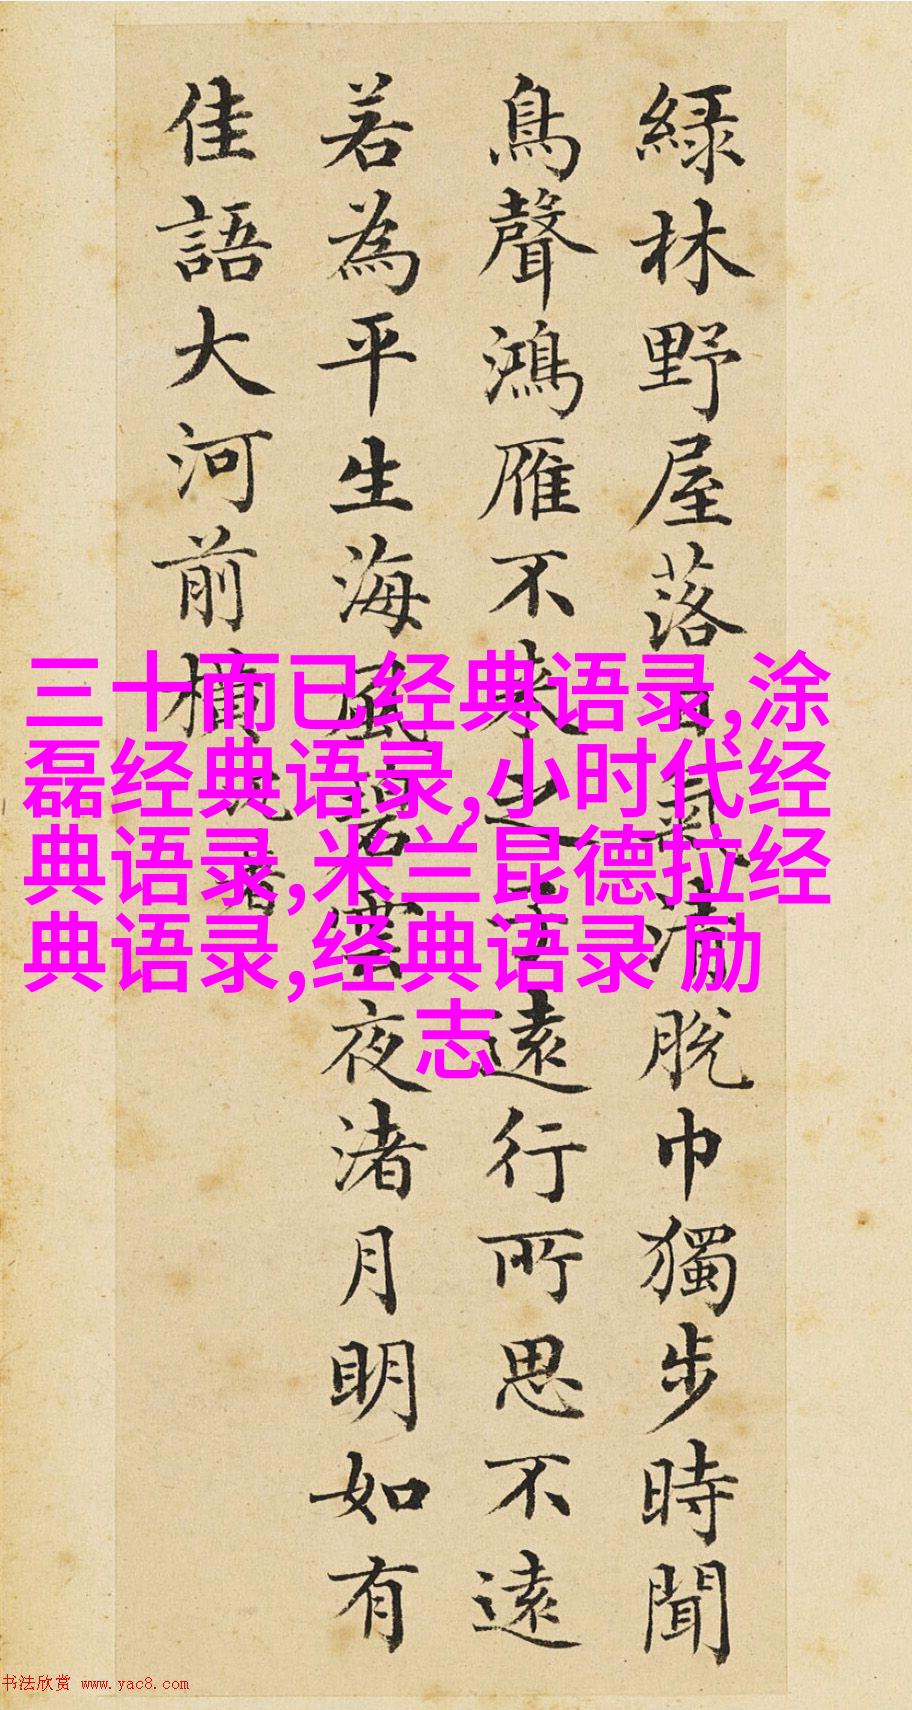 綠林野屋落日氣清脫巾獨步時聞
鳥聲鴻雁不來之子遠行所思不遠
若為平生海風碧雲夜渚月明如有
佳語大河前橫沈著
三十而已经典语录,涂
磊经典语录,小时代经
典语录,米兰昆德拉经
典语录,经典语录 励
志
书法欣赏 www.yac8.com